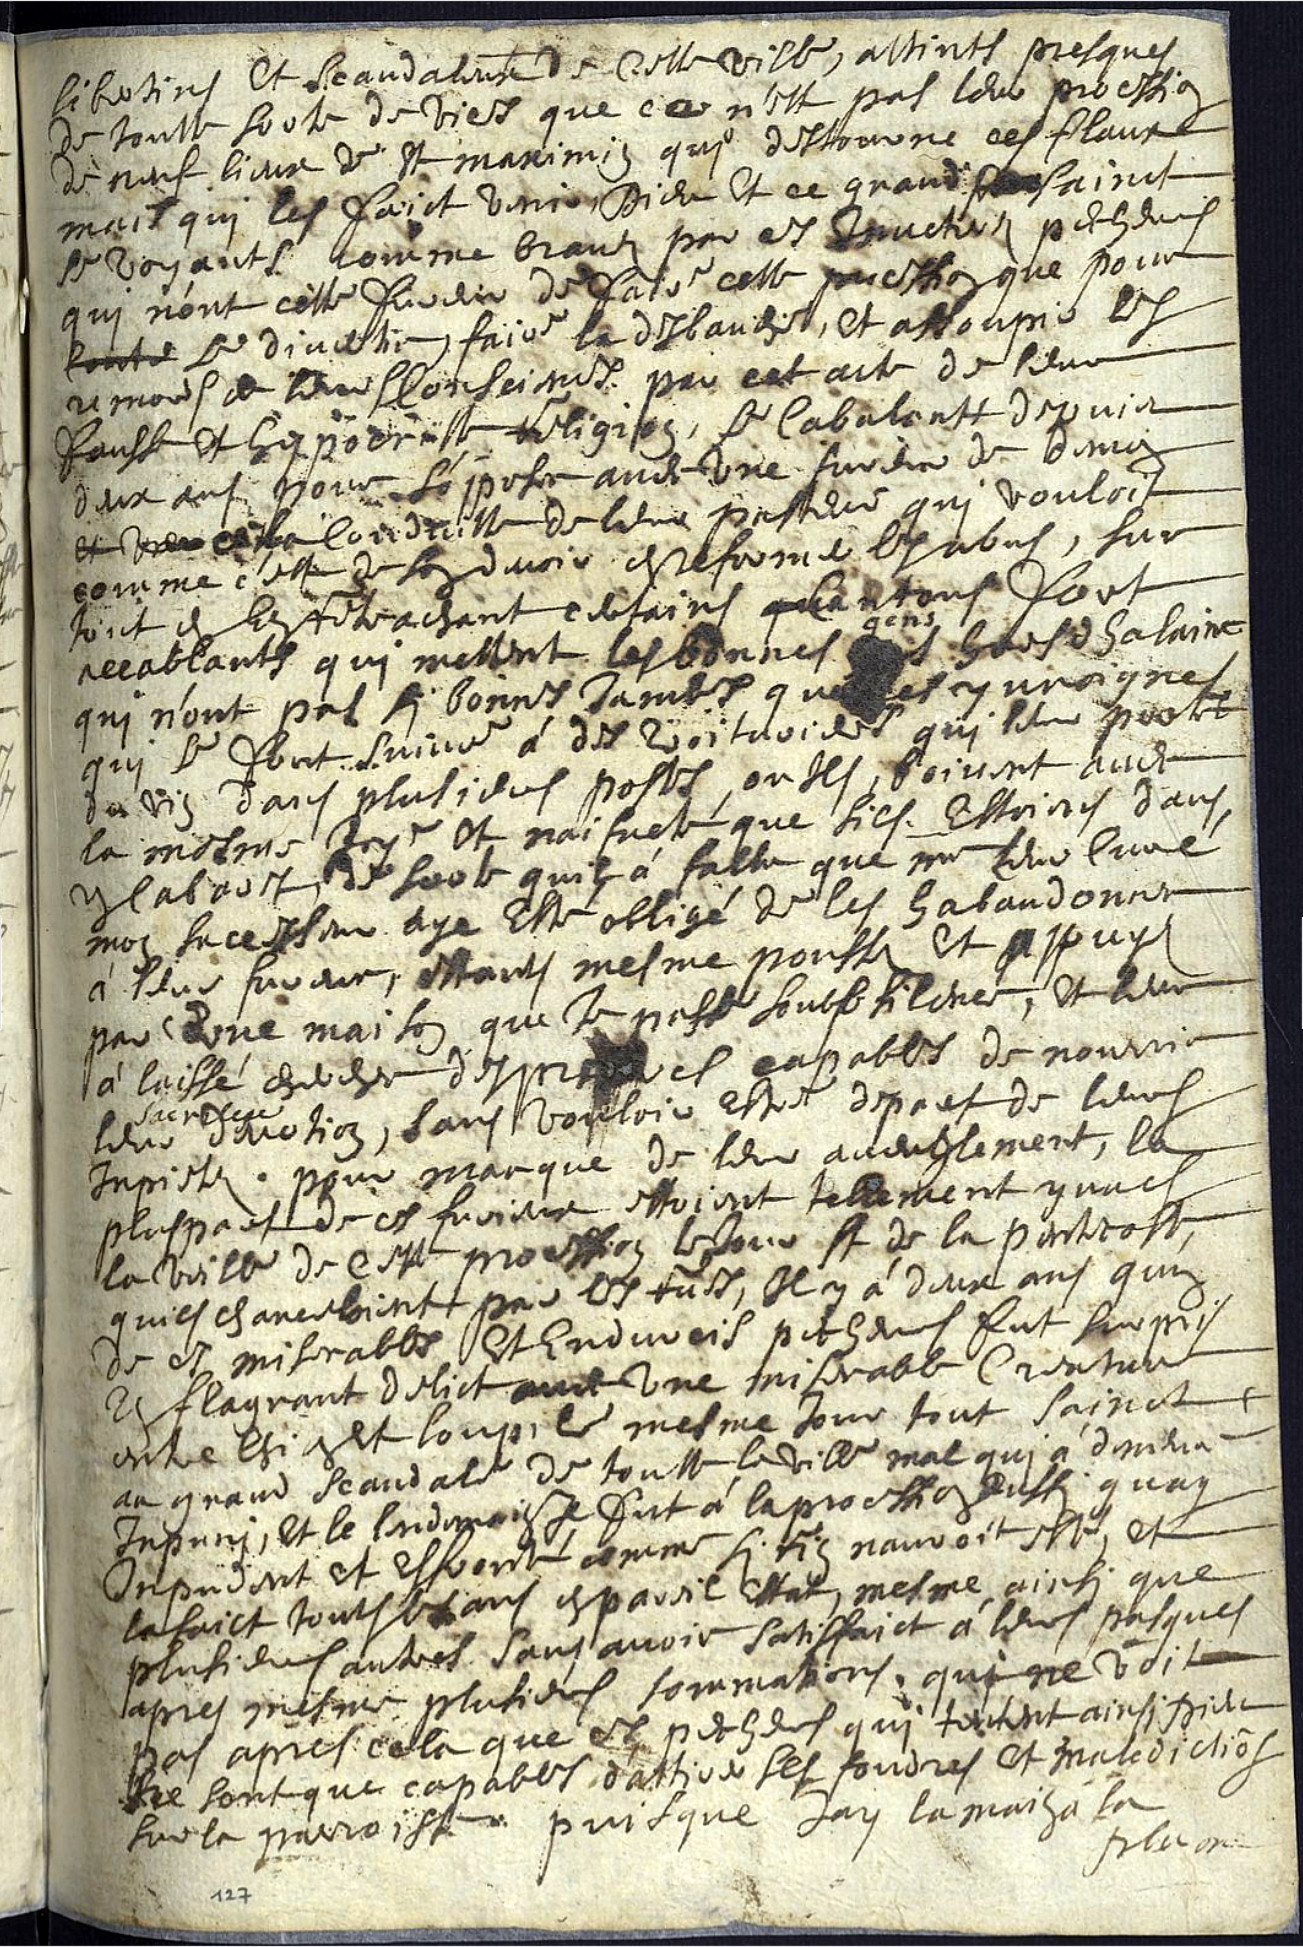 libertins et scandaleux de cette ville, attints presques
de toutte sorte de vices que ce n'est pas leur procession
de neuf lieux de st maximin qui destourne ces fleaux
mais qui les faict venir, Dieu et ce grand sainct
se voyants comme braués par ces pecheurs
qui n'ont cette fureur de faire cette procession que pour
se diuertir, faire la desbauche, et assoupir les
remors de leurs Consciences par cet acte de leur
fausse et hypocrisse religion, se Cabalantt depuis
deux ans pour s'opposer auec une fureur de demon
a la Conduitte de leur pasteur qui vouloit
comme c'est de son deuoir en reformer les abus, sur
tout en retrachant certains cantons fort
accablants qui mettent les bonnes gens hors d'halaine
qui n'ont pas si bonnes Jambes que ces yuroignes
qui se font suiure à des voituriers qui leur porte
du vin dans plusieurs postes, ou Ils boiuent auec
la mesme Joye et naifueté que s'ils Estoient dans
un Cabaret, de sorte qu'il à fallu que mr leur Curé
mon sucesseur aye Esté obligé de les habandonner
à leur fureur, estants mesme poussés et appuyés
par une maison que Je passe soubs silence, et leur
à laissé chercher des capables de nourrir
leur sacrilege deuotion, sans vouloir Estre depart de leurs
Inpietés. pour marque de leur aueuglement, la
pluspart de ces furieux estoient tellement yures
la veille de Cette procession le Jour st de la pentecoste,
quils chanceloient par les rues, Il y à deux ans quun
de ces miserables Et Endurcis pecheurs fut surpris
en flagrant delict auec une miserable Creature
entre Chien et loup le mesme Jour tout sainct
au grand scandale de toutte la ville mal qui à demeuré
Inpuni, et le lendemain Il fut à la procession aussi guay
Inpudent et Effronté comme si rien nauroit esté, et
la faict touts les ans en pareil Estat, mesme ainsi que
plusieurs autres sans auoir satisfaict à leurs pasques
apres mesme plusieurs sommations, qui ne voit
pas apres cela que ces pecheurs qui tentent ainsi Dieu
ne sont que capables d'attirer ses foudres et maledictiõs
sur la parroisse. puisque Jay la main à la
plume
127